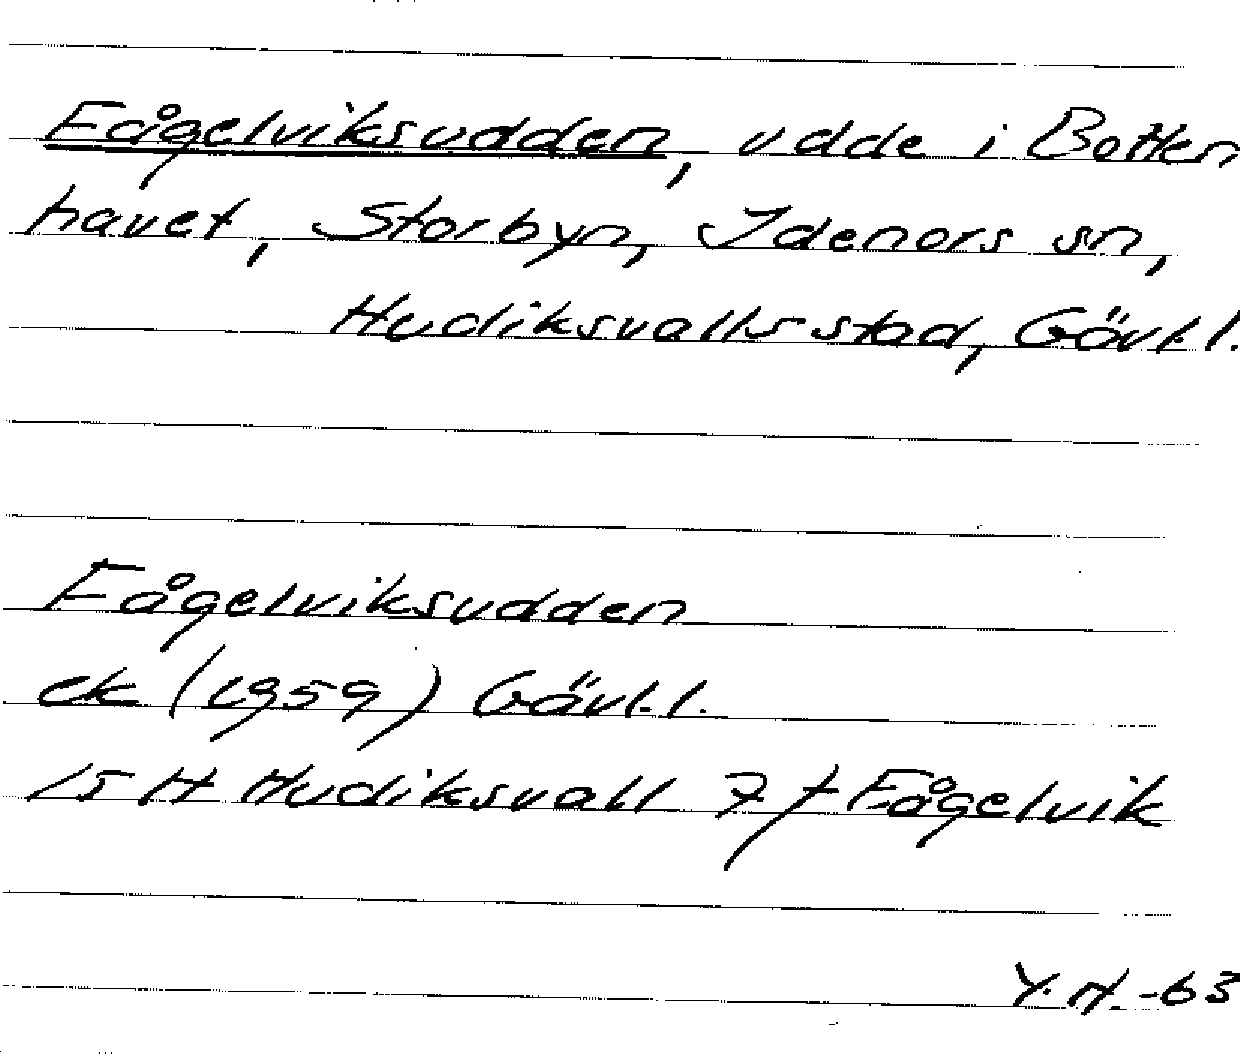 Fågelviksudden, udde i Botten
havet, Storbyn, Idenors sn,
Hudiksvalls stad, Gävl.l.
Fågelviksudden
ek (1959) Gävl.l.
15 H Hudiksvall 7 f Fågelvik
Y.H.-63